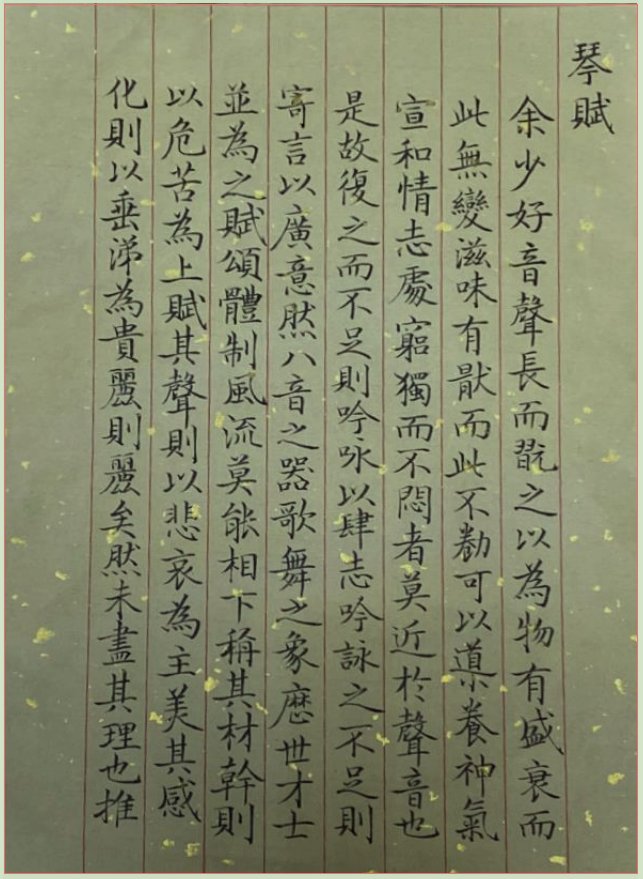 琴賦
余少好音聲長而翫之以為物有盛衰而
此無變滋味有猒而此不勌可以導養神氣
宣和情志處窮獨而不悶者莫近於聲音也
是故復之而不足則吟咏以肆志吟詠之不足則
寄言以廣意然八音之器歌舞之象歷世才士
並為之賦頌體制風流莫能相下稱其材幹則
以危苦為上賦其聲則以悲哀為主美其感
化則以垂涕為貴麗則麗矣然未盡其理也推